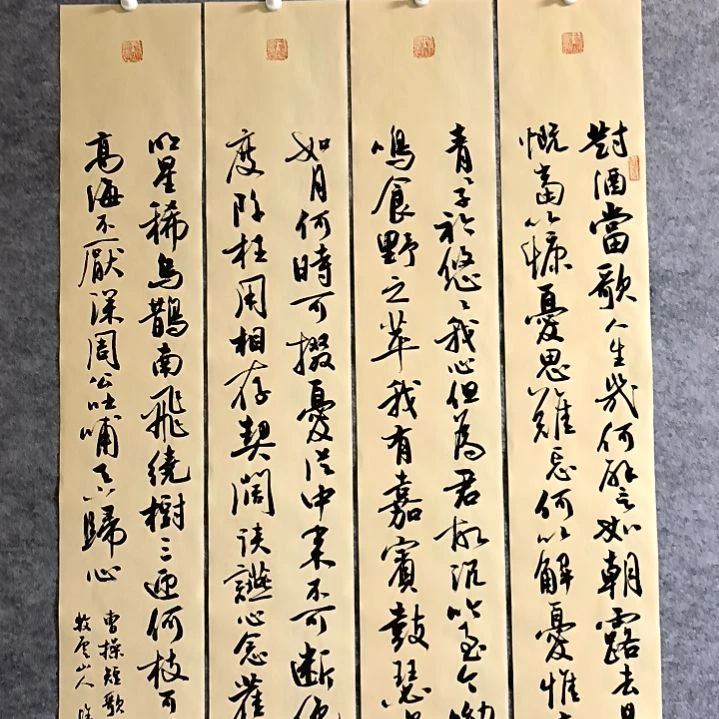 對酒當歌人生幾何譬如朝露去日
慨當以慷憂思難忘何以解憂惟
青青子衿悠悠我心但為君故沉吟至今呦
鳴食野之苹我有嘉賓鼓瑟
如月何時可掇憂從中來不可斷
度阡枉用相存契闊談讌心念舊
明星稀烏鵲南飛繞樹三匝何枝可
高海不厭深周公吐哺天下歸心
曹操短歌
牧雲山人